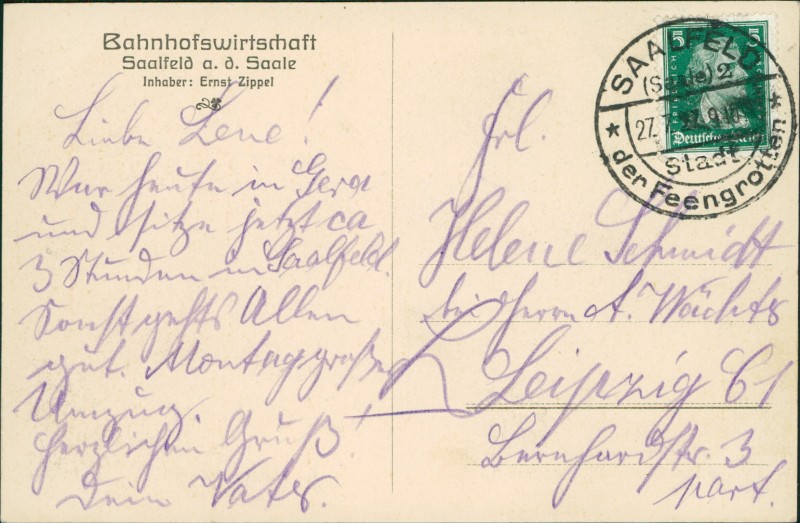 Bahnhofswirtschaft
Saalfeld a. d. Saale
Inhaber: Ernst Zippel
Liebe Lene!
War heute in Gera
und sitze jetzt ca
3 Stunden in Saalfeld.
Sonst gehts Allen
gut. Montag großer
Umzug.
Herzlichen Gruß!
Dein Vater.
SAALFELD
(Saale) 2
27. 27.9
Stadt
der Feengrotten
5 5
Deutsches Reich
Frl.
Helene Schmidt
bei Herrn A. Wächter
Leipzig C 1
Bernhardstr. 3
part.